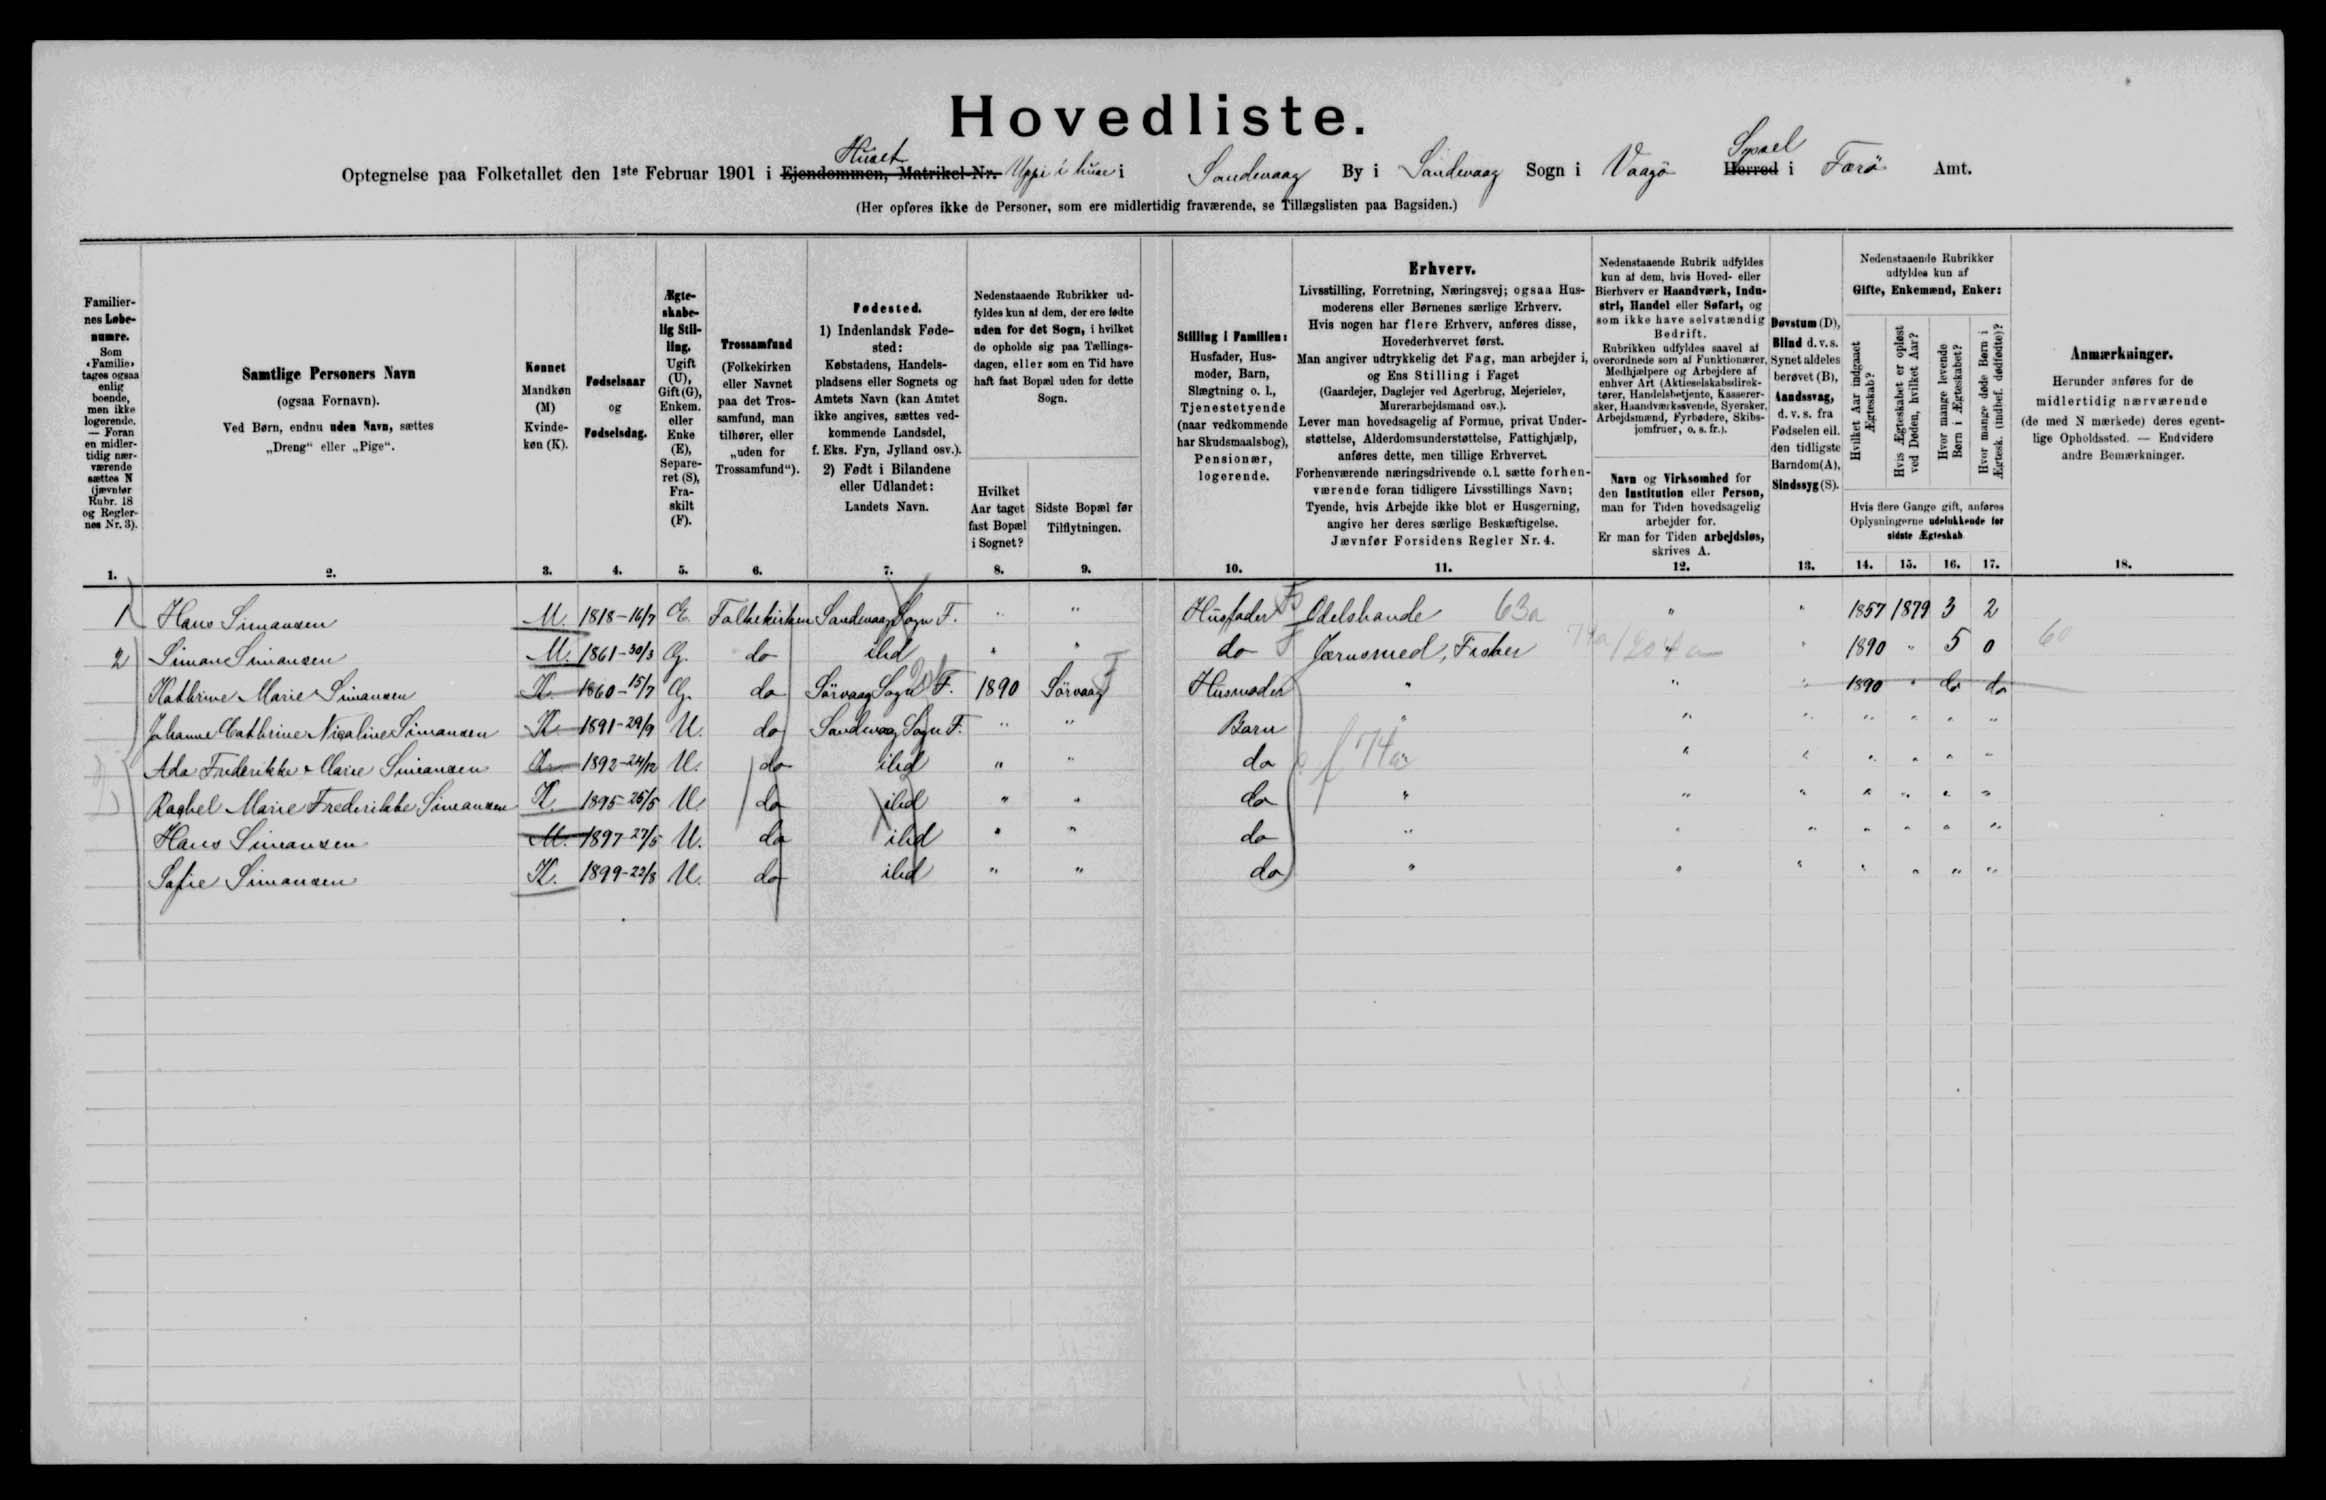 Hovedliste.
Optegnelse paa Folketallet den 1ste Februar 1901 i Ejendommen, Matrikel-Nr. Huset Uppi i húsi i Sandevaag By i Sandevaag Sogn i Vaagö Herred Syssel i Færö Amt.
(Her opføres ikke de Personer, som ere midlertidig fraværende, se Tillægslisten paa Bagsiden.)
Familiernes Løbenumre. Som «Familie» tages ogsaa enlig boende, men ikke logerende. — Foran en midlertidig nærværende sættes N (jævnfør Rubr. 18 og Reglernes Nr. 3).
Samtlige Personers Navn (ogsaa Fornavn). Ved Børn, endnu uden Navn, sættes „Dreng“ eller „Pige“.
Kønnet Mandkøn (M) Kvindekøn (K).
Fødselsaar og Fødselsdag.
Ægteskabelig Stilling. Ugift (U), Gift (G), Enkem. eller Enke (E), Separeret (S), Fraskilt (F).
Trossamfund (Folkekirken eller Navnet paa det Trossamfund, man tilhører, eller „uden for Trossamfund“).
Fødested. 1) Indenlandsk Fødested: Købstadens, Handelspladsens eller Sognets og Amtets Navn (kan Amtet ikke angives, sættes vedkommende Landsdel, f. Eks. Fyn, Jylland osv.). 2) Født i Bilandene eller Udlandet: Landets Navn.
Nedenstaaende Rubrikker udfyldes kun af dem, der ere fødte uden for det Sogn, i hvilket de opholde sig paa Tællingsdagen, eller som en Tid have haft fast Bopæl uden for dette Sogn.
Hvilket Aar taget fast Bopæl i Sognet?
Sidste Bopæl før Tilflytningen.
Stilling i Familien: Husfader, Husmoder, Barn, Slægtning o. l., Tjenestetyende (naar vedkommende har Skudsmaalsbog), Pensionær, logerende.
Erhverv.
Livsstilling, Forretning, Næringsvej; ogsaa Husmoderens eller Børnenes særlige Erhverv.
Hvis nogen har flere Erhverv, anføres disse, Hovederhvervet først.
Man angiver udtrykkelig det Fag, man arbejder i, og Ens Stilling i Faget
(Gaardejer, Daglejer ved Agerbrug, Mejerielev, Murerarbejdsmand osv.).
Lever man hovedsagelig af Formue, privat Understøttelse, Alderdomsunderstøttelse, Fattighjælp, anføres dette, men tillige Erhvervet.
Forhenværende næringsdrivende o. l. sætte forhenværende foran tidligere Livsstillings Navn;
Tyende, hvis Arbejde ikke blot er Husgerning, angive her deres særlige Beskæftigelse.
Jævnfør Forsidens Regler Nr. 4.
Nedenstaaende Rubrik udfyldes kun af dem, hvis Hoved- eller Bierhverv er Haandværk, Industri, Handel eller Søfart, og som ikke have selvstændig Bedrift.
Rubrikken udfyldes saavel af overordnede som af Funktionærer, Medhjælpere og Arbejdere af enhver Art (Aktieselskabsdirektører, Handelsbetjente, Kasserersker, Haandværkssvende, Syersker, Arbejdsmænd, Fyrbødere, Skibsjomfruer, o. s. fr.).
Navn og Virksomhed for den Institution eller Person, man for Tiden hovedsagelig arbejder for.
Er man for Tiden arbejdsløs, skrives A.
Døvstum (D), Blind d. v. s. Synet aldeles berøvet (B), Aandssvag, d. v. s. fra Fødselen ell. den tidligste Barndom (A), Sindssyg (S).
Nedenstaaende Rubrikker udfyldes kun af Gifte, Enkemænd, Enker:
Hvilket Aar indgaaet Ægteskab?
Hvis Ægteskabet er opløst ved Døden, hvilket Aar?
Hvor mange levende Børn i Ægteskabet?
Hvor mange døde Børn i Ægtesk. (indbef. dødfødte)?
Hvis flere Gange gift, anføres Oplysningerne udelukkende for sidste Ægteskab
Anmærkninger.
Herunder anføres for de midlertidig nærværende (de med N mærkede) deres egentlige Opholdssted. — Endvidere andre Bemærkninger.
1. 2. 3. 4. 5. 6. 7. 8. 9. 10. 11. 12. 13. 14. 15. 16. 17. 18.
1 Hans Simonsen M. 1818-16/7 E. Folkekirken Sandevaag Sogn F. " " Husfader Odelsbonde 63a " " 1857 1879 3 2
2 Simon Simonsen M. 1861-30/3 G. do ibid " " do Jernsmed, Fisker " 1890 " 5 0 60
Kathrine Marie Simonsen K. 1860-15/7 G. do Sörvaag Sogn F. 1890 Sörvaag Husmoder " " " 1890 " do do
Johanne Cathrine Nicoline Simonsen K. 1891-29/9 U. do Sandevaag Sogn F. " " Barn " " " " " " "
Ada Frederikke Marie Simonsen K. 1892-24/12 U. do ibid " " do f 74a " " " " " "
Rachel Marie Frederikke Simonsen K. 1895-26/5 U. do ibid " " do " " " " " " "
Hans Simonsen M. 1897-27/5 U. do ibid " " do " " " " " " "
Sofie Simonsen K. 1899-22/8 U. do ibid " " do " " " " " " "